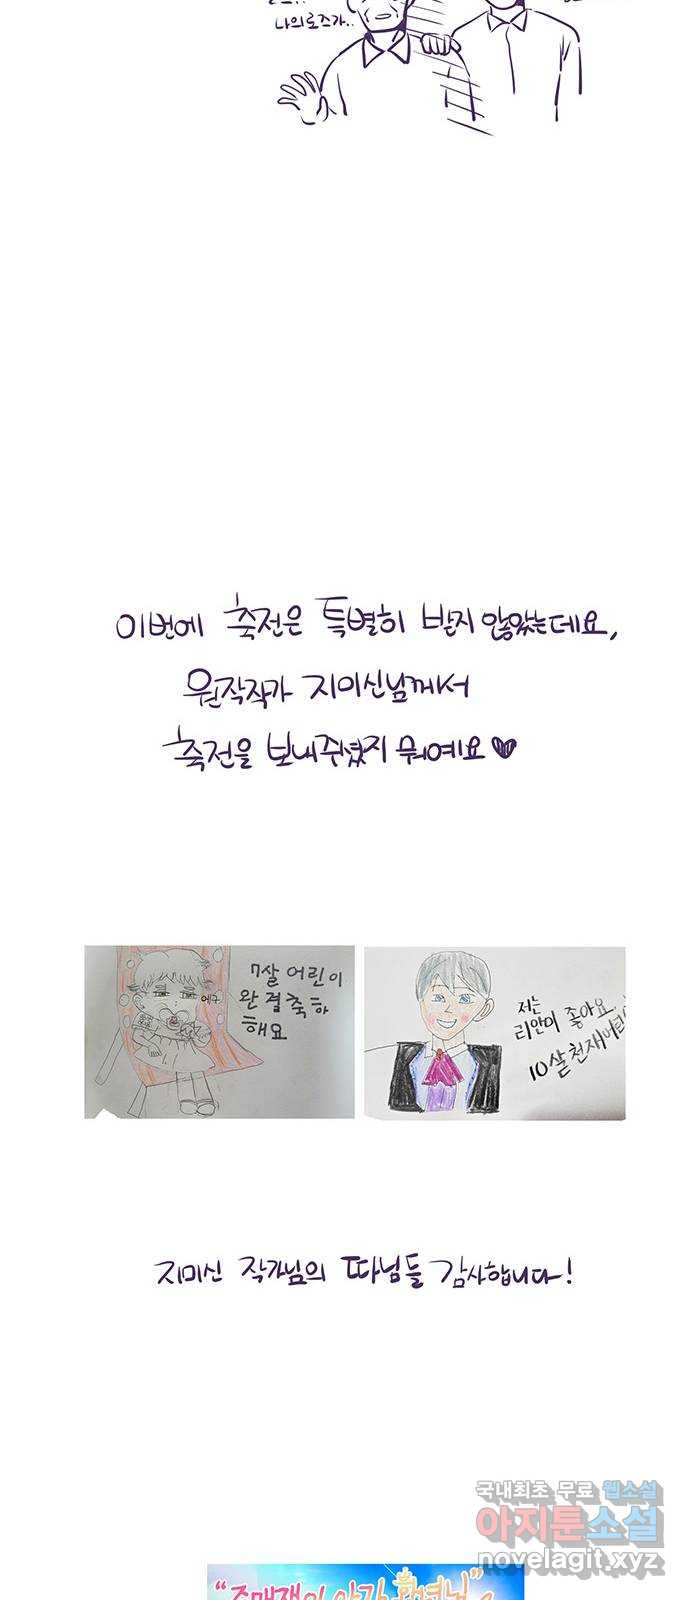 나의로즈가..
이번에 축전은 특별히 받지 않았는데요,
원작작가 지미신님께서
축전을 보내주셨지 뭐예요♥
7살 어린이
완결축하
해요
에구
저는
리안이 좋아요
10살 천재
지미신 작가님의 따님들 감사합니다!
국내최초 무료 웹소설
아지툰소설
novelagit.xyz